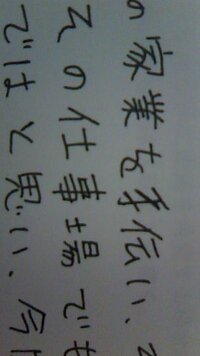 の家業を手伝い、
その仕事場でも
ではと思い、今